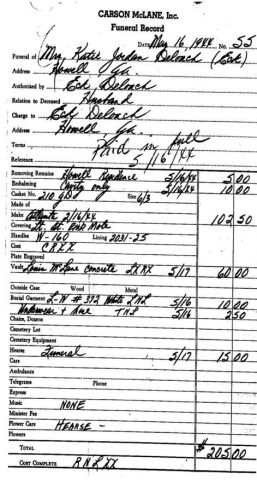 CARSON McLANE, Inc.
Funeral Record
Date May 16, 1944 No. 55
Funeral of Mrs. Katie Jordan Deloach (Eck)
Address Howell, Ga.
Authorized by Eck Deloach
Relation to Deceased Husband
Charge to Eck Deloach
Address Howell, Ga.
Terms Paid in full
Reference 5/16/44
Removing Remains Howell Residence 5/16/44 5 00
Embalming only 5/16/44 10 00
Casket No. 210 Size 6/3
Made of
Make Atlanta 2/16/44 102 50
Covering
Handles W-160 Lining 2031-25
Cost CRXX
Plate Engraved
Vault McLane Concrete 5/17 60 00
Outside Case Wood Metal
Burial Garment L-W # 372 White 5/16 10 00
Underwear + Hose 5/16 2 50
Chairs, Dozens
Cemetery Lot
Cemetery Equipment
Hearse Funeral 5/17 15 00
Cars
Ambulance
Telegrams Phone
Express
Music NONE
Minister Fee
Flower Cars HEARSE -
Flowers
TOTAL $ 205.00
COST COMPLETE RNLXX